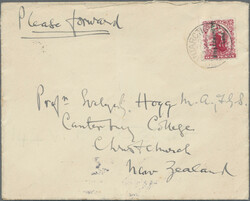 Please forward
Hogg M.A. F.G.S.
Canterbury College
Christchurch
New Zealand